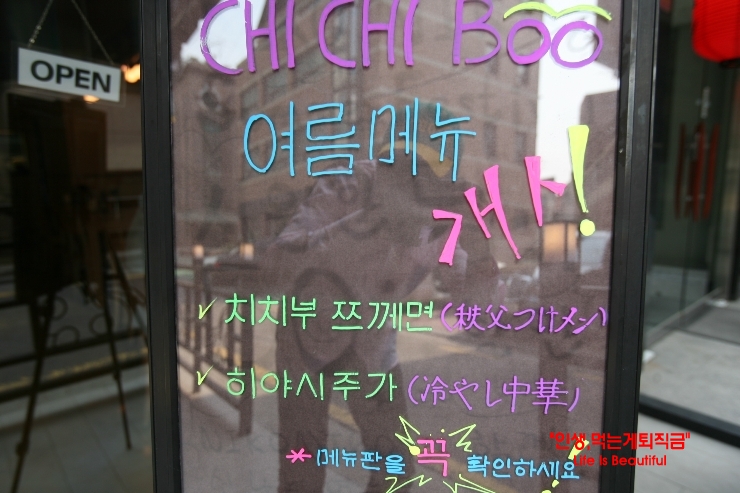 CHI CHI BOO
OPEN
여름메뉴
개시!
✓ 치치부 쯔께면 (秩父つけメン)
✓ 히야시주가 (冷やし中華)
* 메뉴판을 꼭 확인하세요
"인생,먹는게퇴직금"
Life is Beautiful